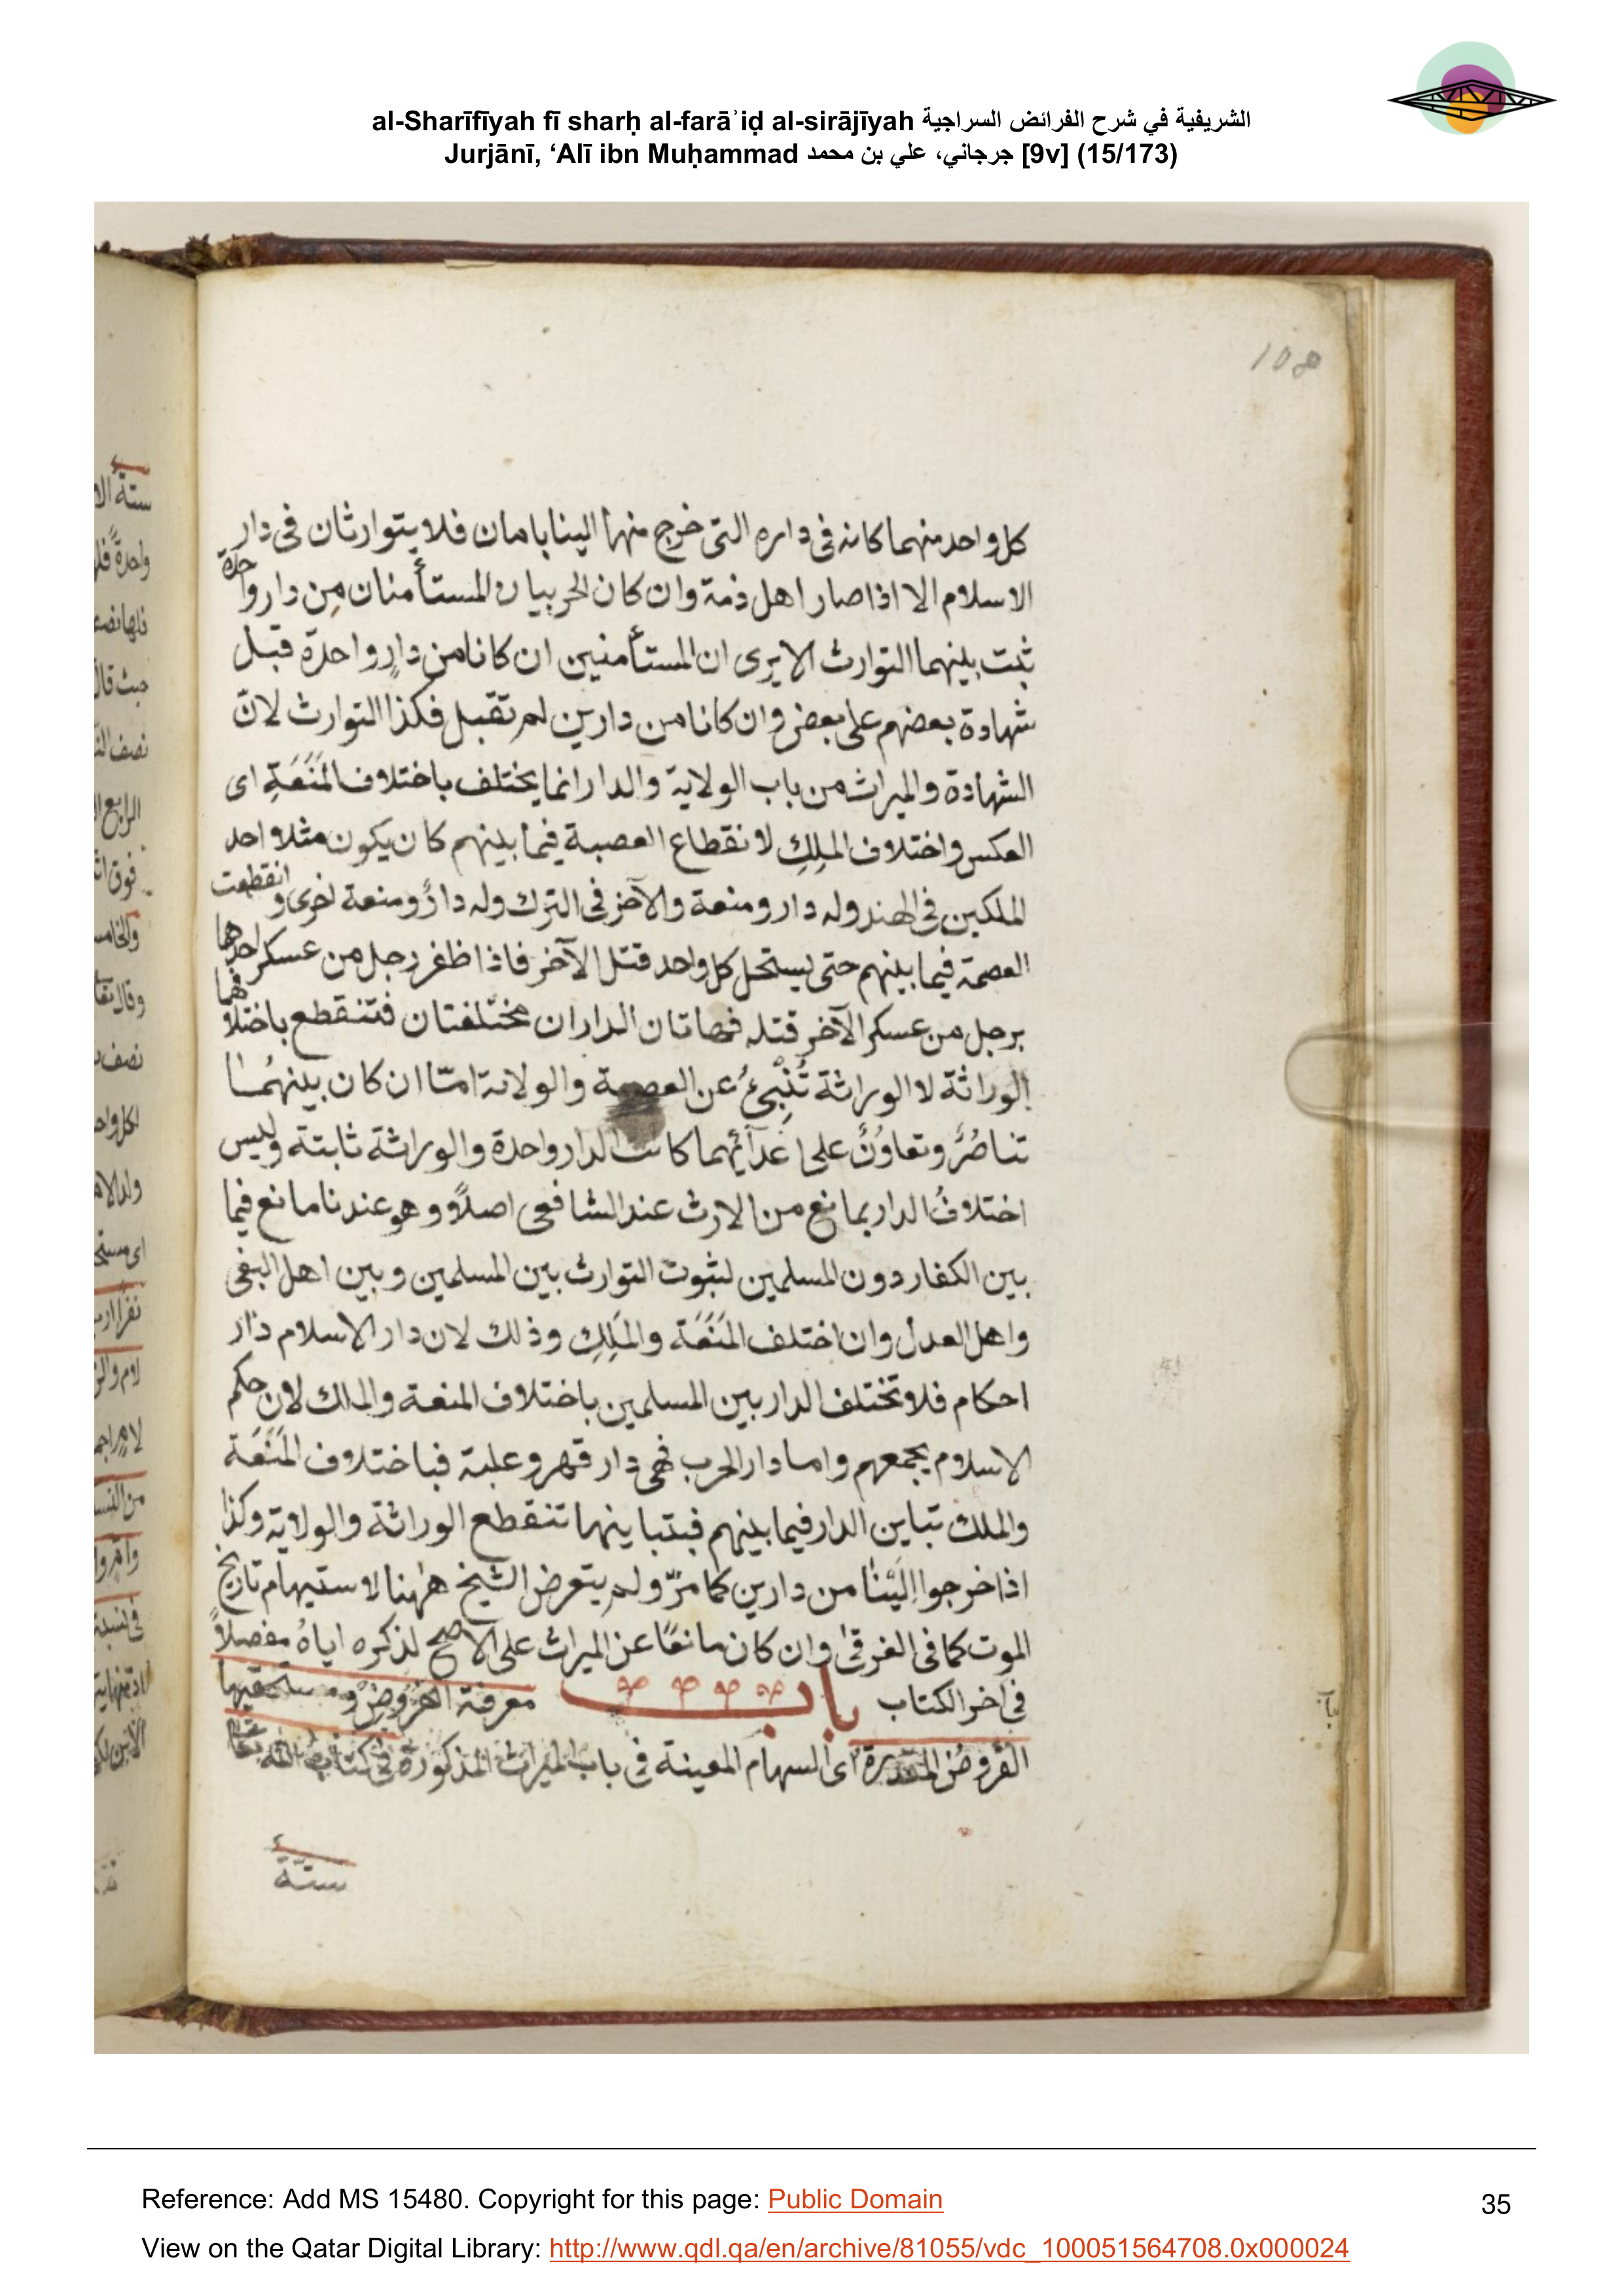 al-Sharīfīyah fī sharḥ al-farāʾiḍ al-sirājīyah الشريفية في شرح الفرائض السراجية
Jurjānī, ‘Alī ibn Muḥammad جرجاني، علي بن محمد [9v] (15/173)
108
كل واحد منهما كانه فى داره التى خرج منها الينا بامان فلا يتوارثان فى دار
الاسلام الا اذا صار اهل ذمة وان كان الحربيان المستأمنان مِن دار واحدة
ثبت بينهما التوارث الا يرى ان المستأمنين ان كانا من دارٍ واحدة قبل
شهادة بعضهم على بعض وان كانا من دارين لم تقبل فكذا التوارث لانّ
الشهادة والميراث من باب الولاية والدار انما يختلف باختلاف المَنَعَةِ اى
العكس واختلاف الملِكِ لانقطاع العصبة فيما بينهم كان يكون مثلا احد
الملكين فى الهند وله دار ومنعة والآخر فى الترك وله دارٌ ومنعة اخرى وانقطعت
العصمة فيما بينهم حتى يستحل كل واحد قتل الآخر فاذا ظفر رجل من عسكر احدهما
برجل من عسكر الآخر قتله فهاتان الداران مختلفتان فتنقطع باختلافهما
الوراثة لا الوراثة تُنْبِئُ عن العصمة والولاية امّا ان كان بينهُما
تناصُرٌ وتعاوُنٌ على اعدآئهما كانت الدار واحدة والوراثة ثابتة وليس
اختلافُ الدار بمانع من الارث عند الشافعى اصلاً وهو عندنا مانع فيما
بين الكفار دون المسلمين لثبوت التوارث بين المسلمين وبين اهل البغى
واهل العدل وان اختلف المَنَعَة والمَلِك وذلك لان دار الاسلام دار
احكام فلا تختلف الدار بين المسلمين باختلاف المنعة والملك لان حكم
الاسلام يجمعهم واما دار الحرب فهى دار قهر وغلبة فباختلاف المَنَعَة
والملك تباين الدار فيما بينهم فبتباينهما تنقطع الوراثة والولاية وكذا
اذا خرجوا اِلَيْنَا من دارين كما مرّ ولم يتعرض الشيخ هٰهنا لاستبهام تاريخ
الموت كما فى الغرقى وان كان مانعًا عن الميراث على الاصح لذكره اياهُ مفصلاً
فى اخر الكتاب باب معرفة الفروض ومستحقيها
الفروض المقدرة اى السهام المعينة فى باب الميراث المذكورة فى كتاب الله تعا
ستة
Reference: Add MS 15480. Copyright for this page: Public Domain
35
View on the Qatar Digital Library: http://www.qdl.qa/en/archive/81055/vdc_100051564708.0x000024